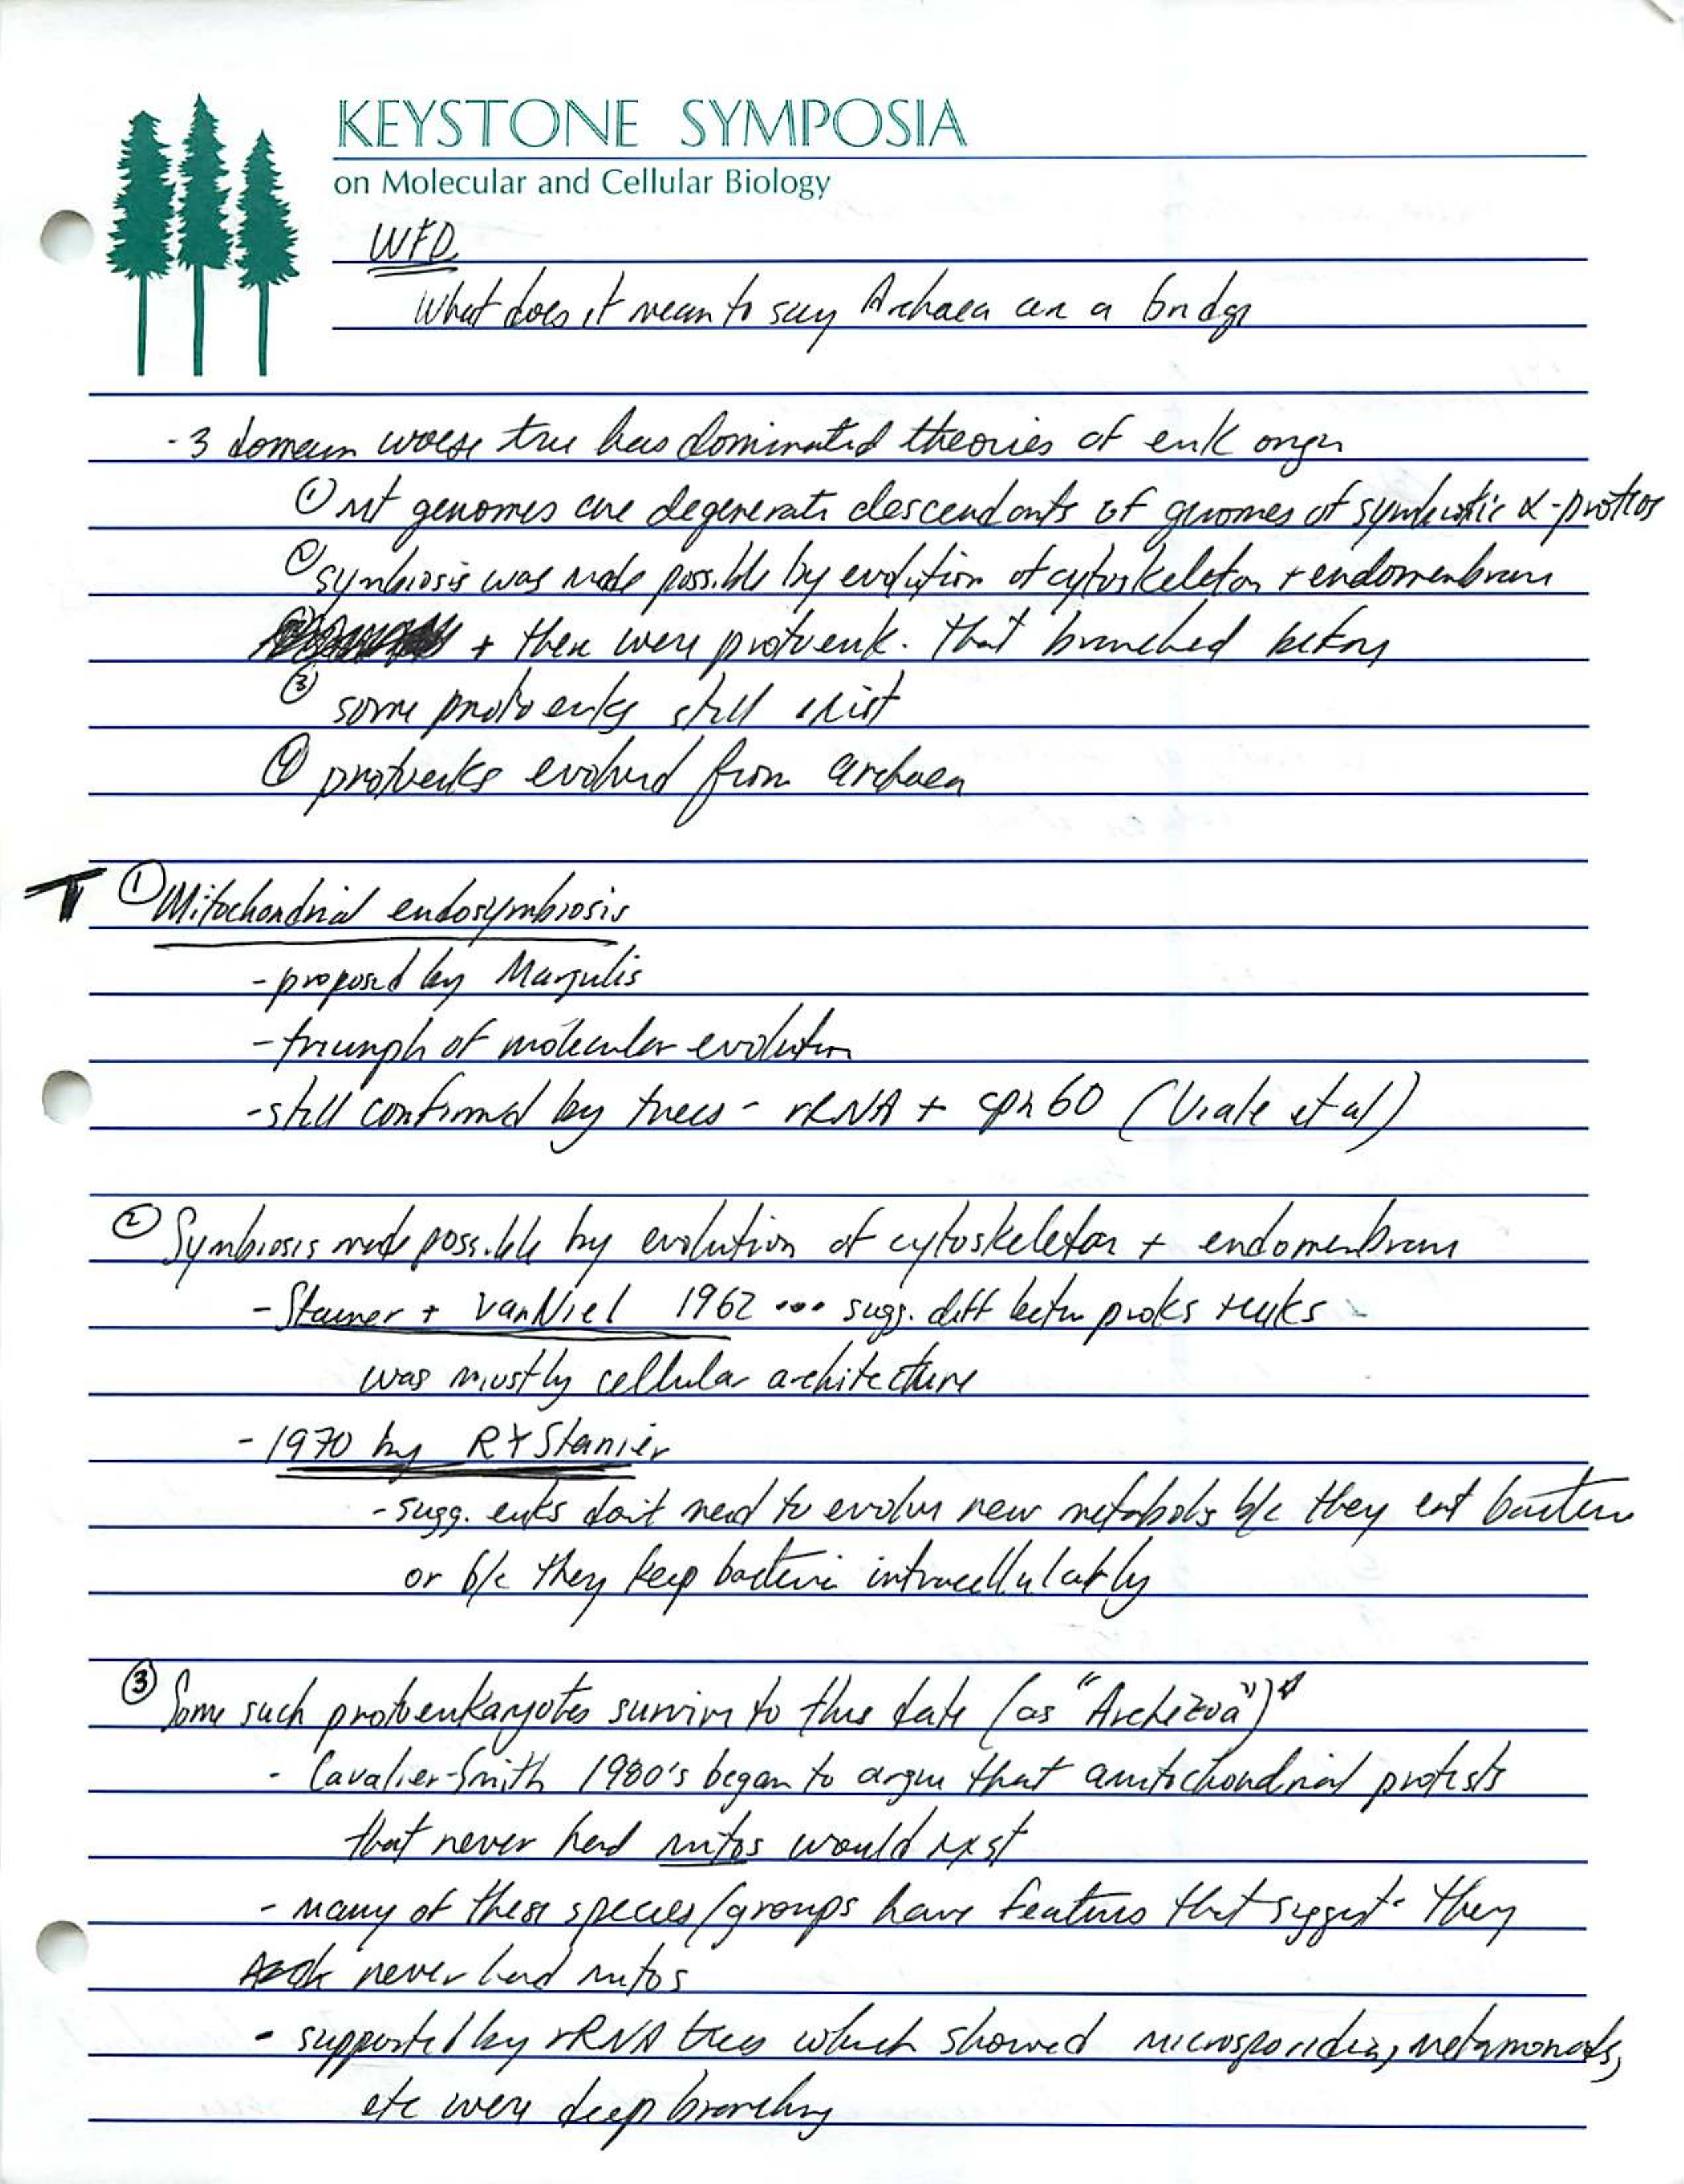 KEYSTONE SYMPOSIA
on Molecular and Cellular Biology
WFD
What does it mean to say Archaea are a bridge
- 3 domain woese tree has dominated theories of euk origin
① mt genomes are degenerate descendants of genomes of symbiotic α-proteos
② symbiosis was made possible by evolution of cytoskeleton + endomembrane
+ there were protoeuk. that branched before
③ some protoeuks still exist
④ protoeuks evolved from archaea
T ① Mitochondrial endosymbiosis
- proposed by Margulis
- triumph of molecular evolution
- still confirmed by trees - rRNA + cpn60 (Viale et al)
② Symbiosis made possible by evolution of cytoskeleton + endomembrane
- Stanier + VanNiel 1962 ... sugg. diff betw proks + euks
was mostly cellular architecture
- 1970 by RY Stanier
- sugg. euks don't need to evolve new metabols b/c they eat bacteria
or b/c they keep bacteria intracellularly
③ Some such protoeukaryotes survive to this date (as "Archezoa")
- Cavalier-Smith 1980's began to argue that amitochondrial protists
that never had mitos would exist
- many of these species/groups have features that suggest they
never had mitos
- supported by rRNA trees which showed microsporidia, metamonads,
etc were deep branching